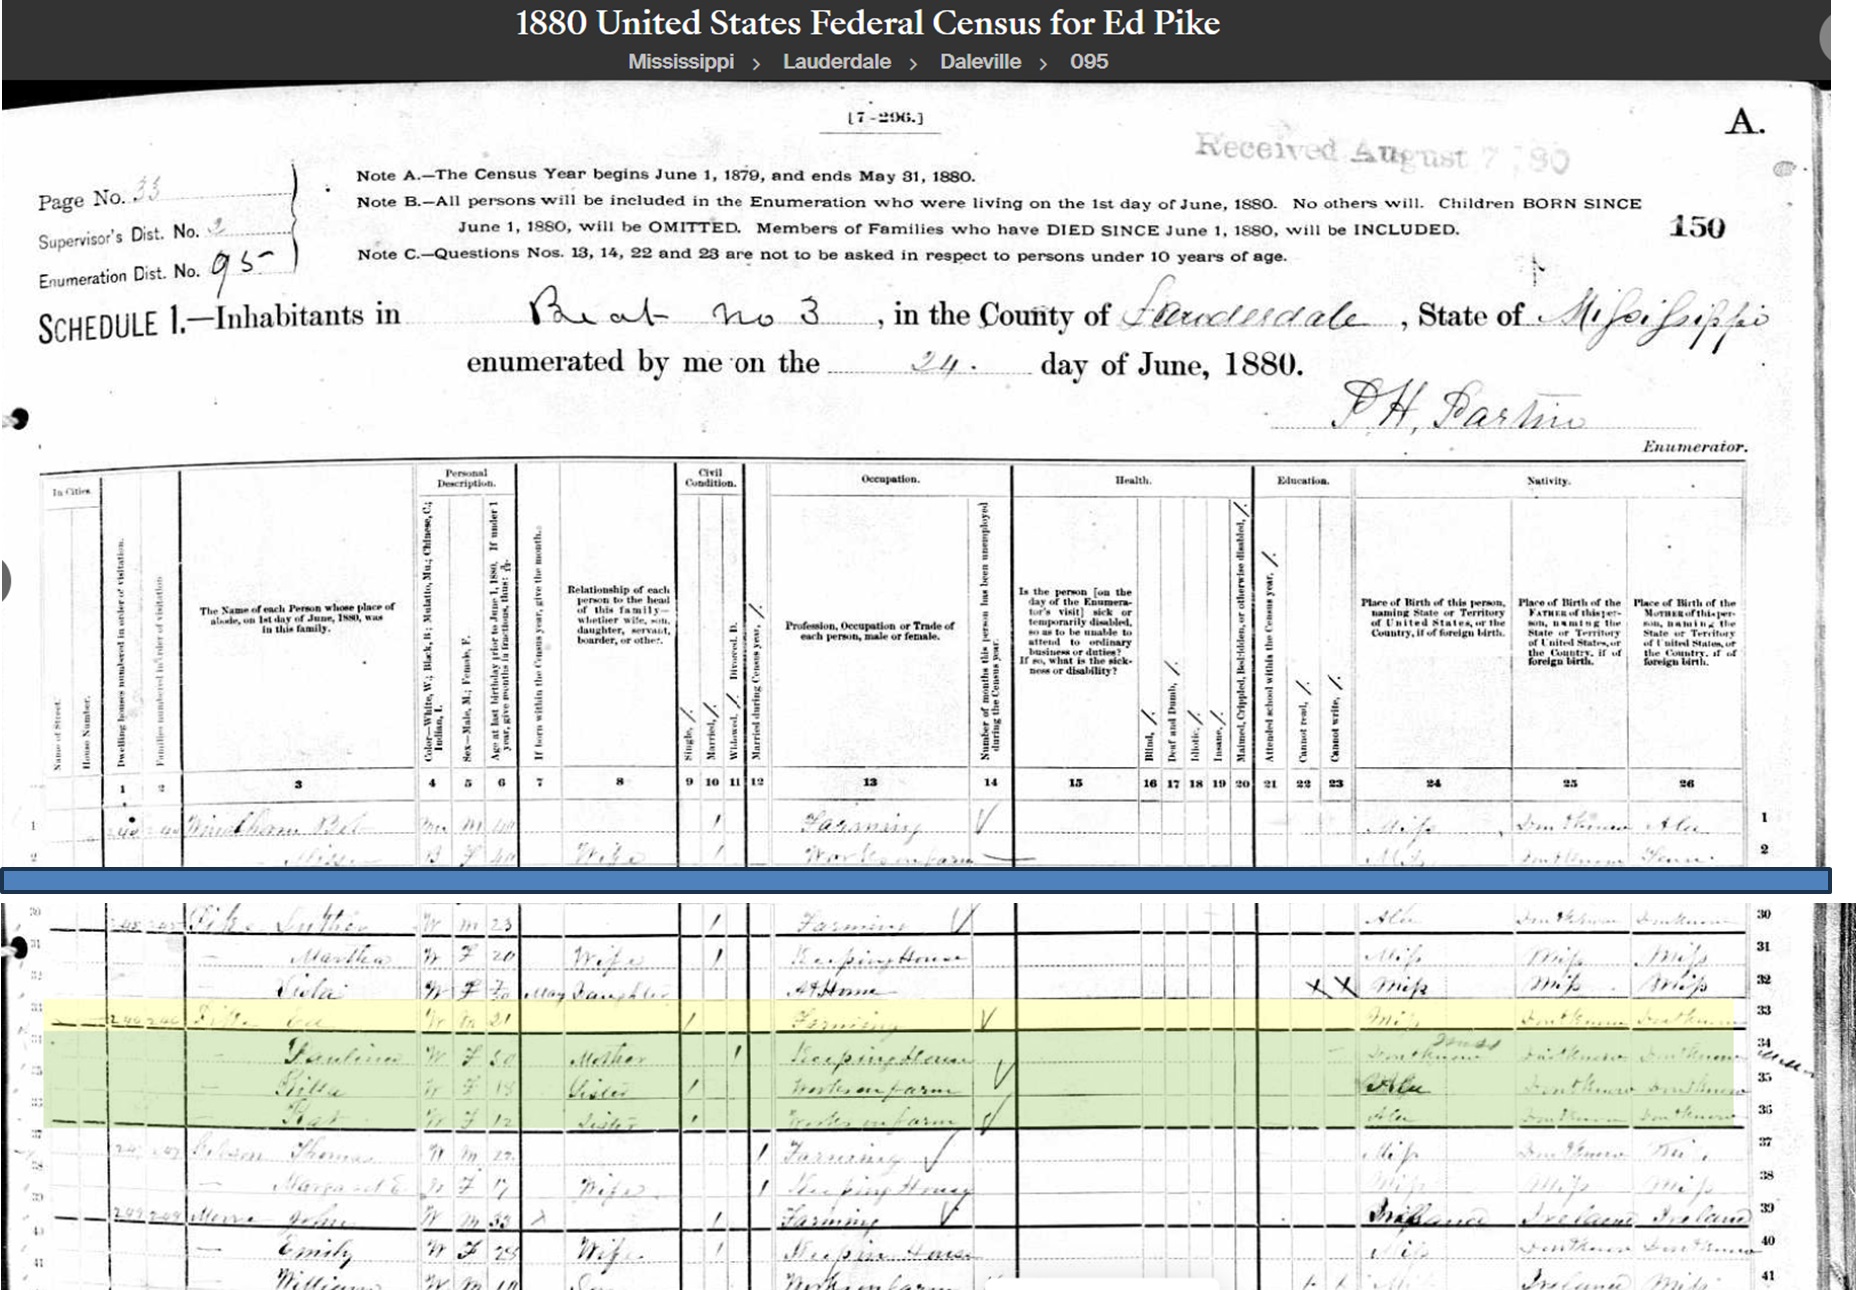 1880 United States Federal Census for Ed Pike
Mississippi > Lauderdale > Daleville > 095
[7-296.]
A.
Received August 7, 80
Page No. 33
Supervisor's Dist. No. 2
Enumeration Dist. No. 95
Note A.—The Census Year begins June 1, 1879, and ends May 31, 1880.
Note B.—All persons will be included in the Enumeration who were living on the 1st day of June, 1880. No others will. Children BORN SINCE
June 1, 1880, will be OMITTED. Members of Families who have DIED SINCE June 1, 1880, will be INCLUDED.
Note C.—Questions Nos. 13, 14, 22 and 23 are not to be asked in respect to persons under 10 years of age.
150
SCHEDULE 1.—Inhabitants in Beat no 3, in the County of Lauderdale, State of Mississippi
enumerated by me on the 24. day of June, 1880.
P. H. Partin
Enumerator.
In Cities.
Name of Street.
House Number.
Dwelling houses numbered in order of visitation.
Families numbered in order of visitation
The Name of each Person whose place of
abode, on 1st day of June, 1880, was
in this family.
Personal
Description.
Color—White, W.; Black, B.; Mulatto, Mu.; Chinese, C.;
Indian, I.
Sex—Male, M.; Female, F.
Age at last birthday prior to June 1, 1880. If under 1
year, give months in fractions, thus:
If born within the Census year, give the month.
Relationship of each
person to the head
of this family—
whether wife, son,
daughter, servant,
boarder, or other.
Civil
Condition.
Single, /.
Married, /.
Widowed, /. Divorced, D.
Married during Census year, /.
Occupation.
Profession, Occupation or Trade of
each person, male or female.
Number of months this person has been unemployed
during the Census year.
Health.
Is the person [on the
day of the Enumera-
tor's visit] sick or
temporarily disabled,
so as to be unable to
attend to ordinary
business or duties?
If so, what is the sick-
ness or disability?
Blind, /.
Deaf and Dumb, /.
Idiotic, /.
Insane, /.
Maimed, Crippled, Bedridden, or otherwise disabled, /.
Education.
Attended school within the Census year, /.
Cannot read, /.
Cannot write, /.
Nativity.
Place of Birth of this person,
naming State or Territory
of United States, or the
Country, if of foreign birth.
Place of Birth of the
FATHER of this per-
son, naming the
State or Territory
of United States, or
the Country, if of
foreign birth.
Place of Birth of the
MOTHER of this per-
son, naming the
State or Territory
of United States, or
the Country, if of
foreign birth.
1 2 3 4 5 6 7 8 9 10 11 12 13 14 15 16 17 18 19 20 21 22 23 24 25 26
1 Windham Mu M / Farming Miss Dont know Ala 1
2 B F 40 Wife / Works on farm Dont know Tenn. 2
30 245 245 Pike Luther W M 23 / Farming Ala Dont know Dont know 30
31 — Martha W F 20 Wife / Keeping House Miss Miss Miss 31
32 Viola W F May Daughter At Home X X Miss Miss Miss 32
246 246 Pike Ed W M 21 / Farming Miss Dont know Dont know 33
Pauline W F 50 Mother / Keeping House Dont know Dont know Dont know 34
35 — W F 18 Sister / Works on farm Ala Dont know Dont know 35
— W F 12 Sister / Works on farm Ala Dont know Dont know 36
37 247 247 Gibson Thomas W M 22 / Farming Miss Dont know 37
38 — Margaret E W F 17 Wife / Keeping House Miss Miss Miss 38
39 John W M 33 / Farming Ireland Ireland Ireland 39
40 — Emily W F 25 Wife / Keeping House Miss Dont know Dont know 40
41 William W M Son Works on farm Ireland Miss 41